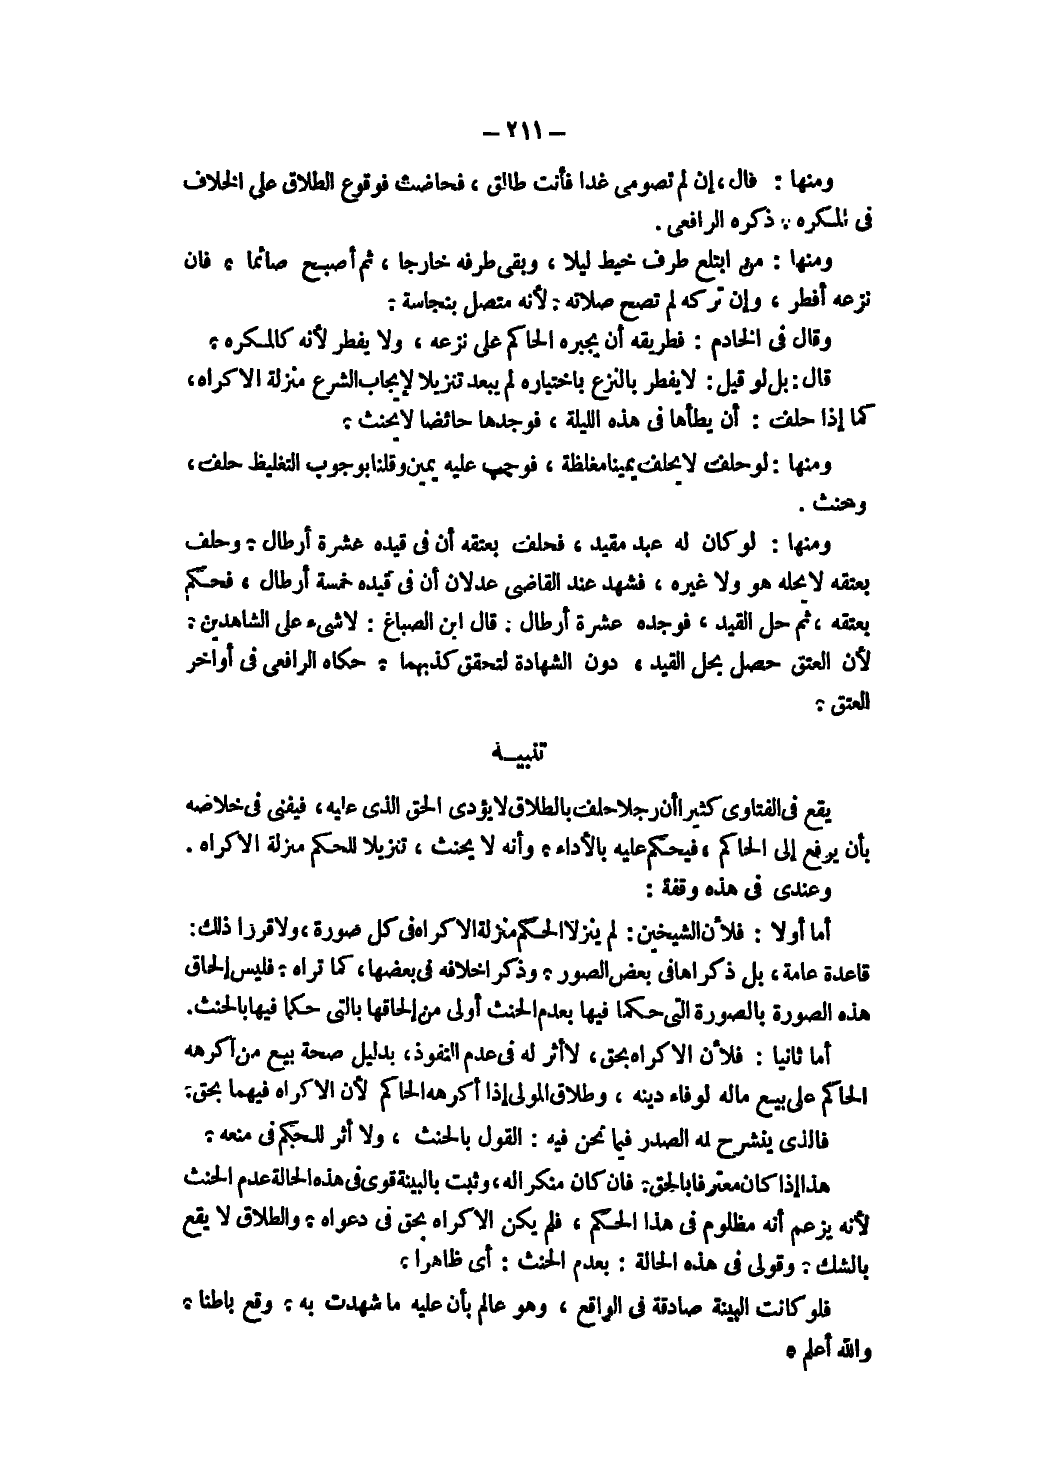 — ٢١١ —
ومنها : قال ، إن لم تصومى غدا فأنت طالق ، فحاضت فوقوع الطلاق على الخلاف
فى المكره . ذكره الرافعى .
ومنها : من ابتلع طرف خيط ليلا ، وبقى طرفه خارجا ، ثم أصبح صائما . فان
نزعه أفطر ، وإن تركه لم تصح صلاته . لأنه متصل بنجاسة .
وقال فى الخادم : فطريقه أن يجبره الحاكم على نزعه ، ولا يفطر لأنه كالمكره .
قال : بل لو قيل : لا يفطر بالنزع باختياره لم يبعد تنزيلا لإيجاب الشرع منزلة الاكراه ،
كما إذا حلف : أن يطأها فى هذه الليلة ، فوجدها حائضا لا يحنث .
ومنها : لو حلف لا يحلف يمينا مغلظة ، فوجب عليه يمين وقلنا بوجوب التغليظ حلف ،
وحنث .
ومنها : لو كان له عبد مقيد ، فحلف بعتقه أن فى قيده عشرة أرطال . وحلف
بعتقه لا يحله هو ولا غيره ، فشهد عند القاضى عدلان أن فى قيده خمسة أرطال ، فحكم
بعتقه ، ثم حل القيد ، فوجده عشرة أرطال . قال ابن الصباغ : لا شىء على الشاهدين .
لأن العتق حصل بحل القيد ، دون الشهادة لتحقق كذبهما . حكاه الرافعى فى أواخر
العتق .
تنبيـه
يقع فى الفتاوى كثيرا أن رجلا حلف بالطلاق لا يؤدى الحق الذى عليه ، فيفتى فى خلاصه
بأن يرفع إلى الحاكم ، فيحكم عليه بالأداء . وأنه لا يحنث ، تنزيلا للحكم منزلة الاكراه .
وعندى فى هذه وقفة :
أما أولا : فلأن الشيخين : لم ينزلا الحكم منزلة الاكراه فى كل صورة ، ولا قرزا ذلك :
قاعدة عامة ، بل ذكراها فى بعض الصور . وذكرا خلافه فى بعضها ، كما تراه . فليس إلحاق
هذه الصورة بالصورة التى حكما فيها بعدم الحنث أولى من إلحاقها بالتى حكما فيها بالحنث .
أما ثانيا : فلأن الاكراه بحق ، لا أثر له فى عدم النفوذ ، بدليل صحة بيع من أكرهه
الحاكم على بيع ماله لوفاء دينه ، وطلاق المولى إذا أكرهه الحاكم لأن الاكراه فيهما بحق .
فالذى ينشرح له الصدر فيما نحن فيه : القول بالحنث ، ولا أثر للحكم فى منعه .
هذا إذا كان معترفا بالحق . فان كان منكرا له ، وثبت بالبينة قوى فى هذه الحالة عدم الحنث
لأنه يزعم أنه مظلوم فى هذا الحكم ، فلم يكن الاكراه بحق فى دعواه . والطلاق لا يقع
بالشك . وقولى فى هذه الحالة : بعدم الحنث : أى ظاهرا .
فلو كانت البينة صادقة فى الواقع ، وهو عالم بأن عليه ما شهدت به . وقع باطنا .
والله أعلم .